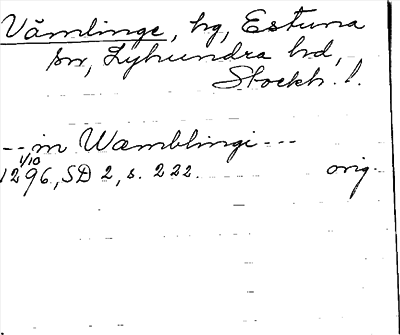 Vämlinge, hg, Estuna
sn, Lyhundra hd,
Stockh. l.
-- in Wæmblingi ---
1/10
1296, SD 2, s. 222. orig.